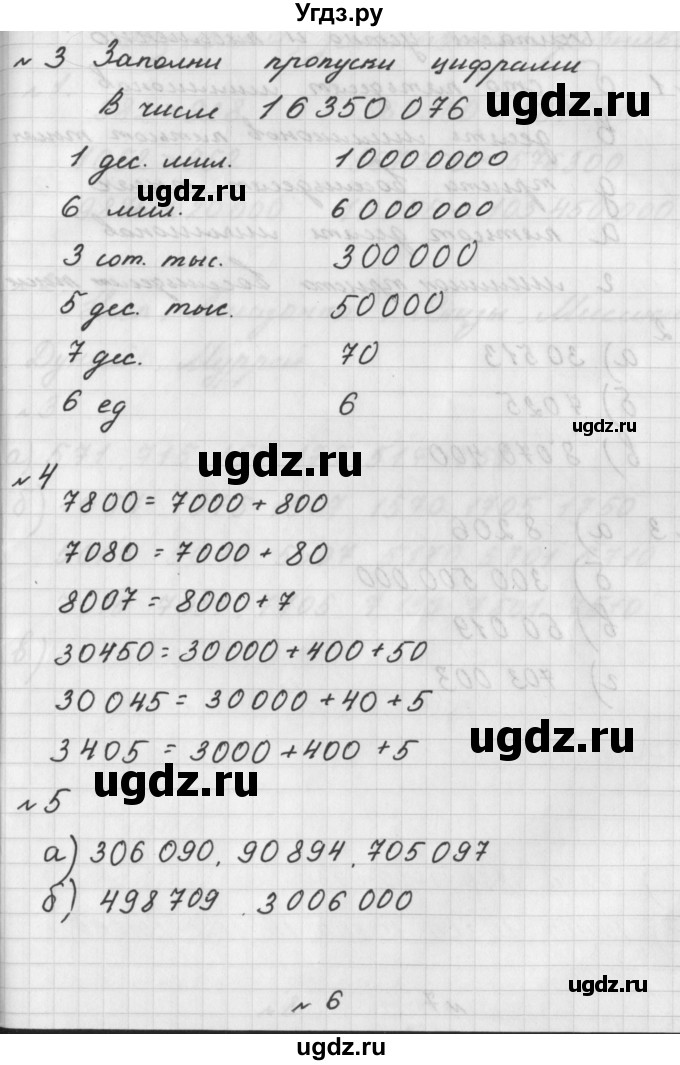 Угдз.ру
№ 3 Заполни пропуски цифрами
В числе 16350 076
1 дес. мил. 10000000
6 мил. 6 000 000
3 сот. тыс. 300 000
5 дес. тыс. 50000
7 дес. 70
6 ед 6
№ 4
7800 = 7000 + 800
7080 = 7000 + 80
8007 = 8000 + 7
30450 = 30 000 + 400 + 50
30 045 = 30 000 + 40 + 5
3405 = 3000 + 400 + 5
№ 5
а) 306 090, 90 894, 705 097
б) 498 709 3 006 000
№ 6
ugdz.ru
ugdz.ru
ugdz.ru
ugdz.ru
ugdz.ru
ugdz.ru
ugdz.ru
ugdz.ru